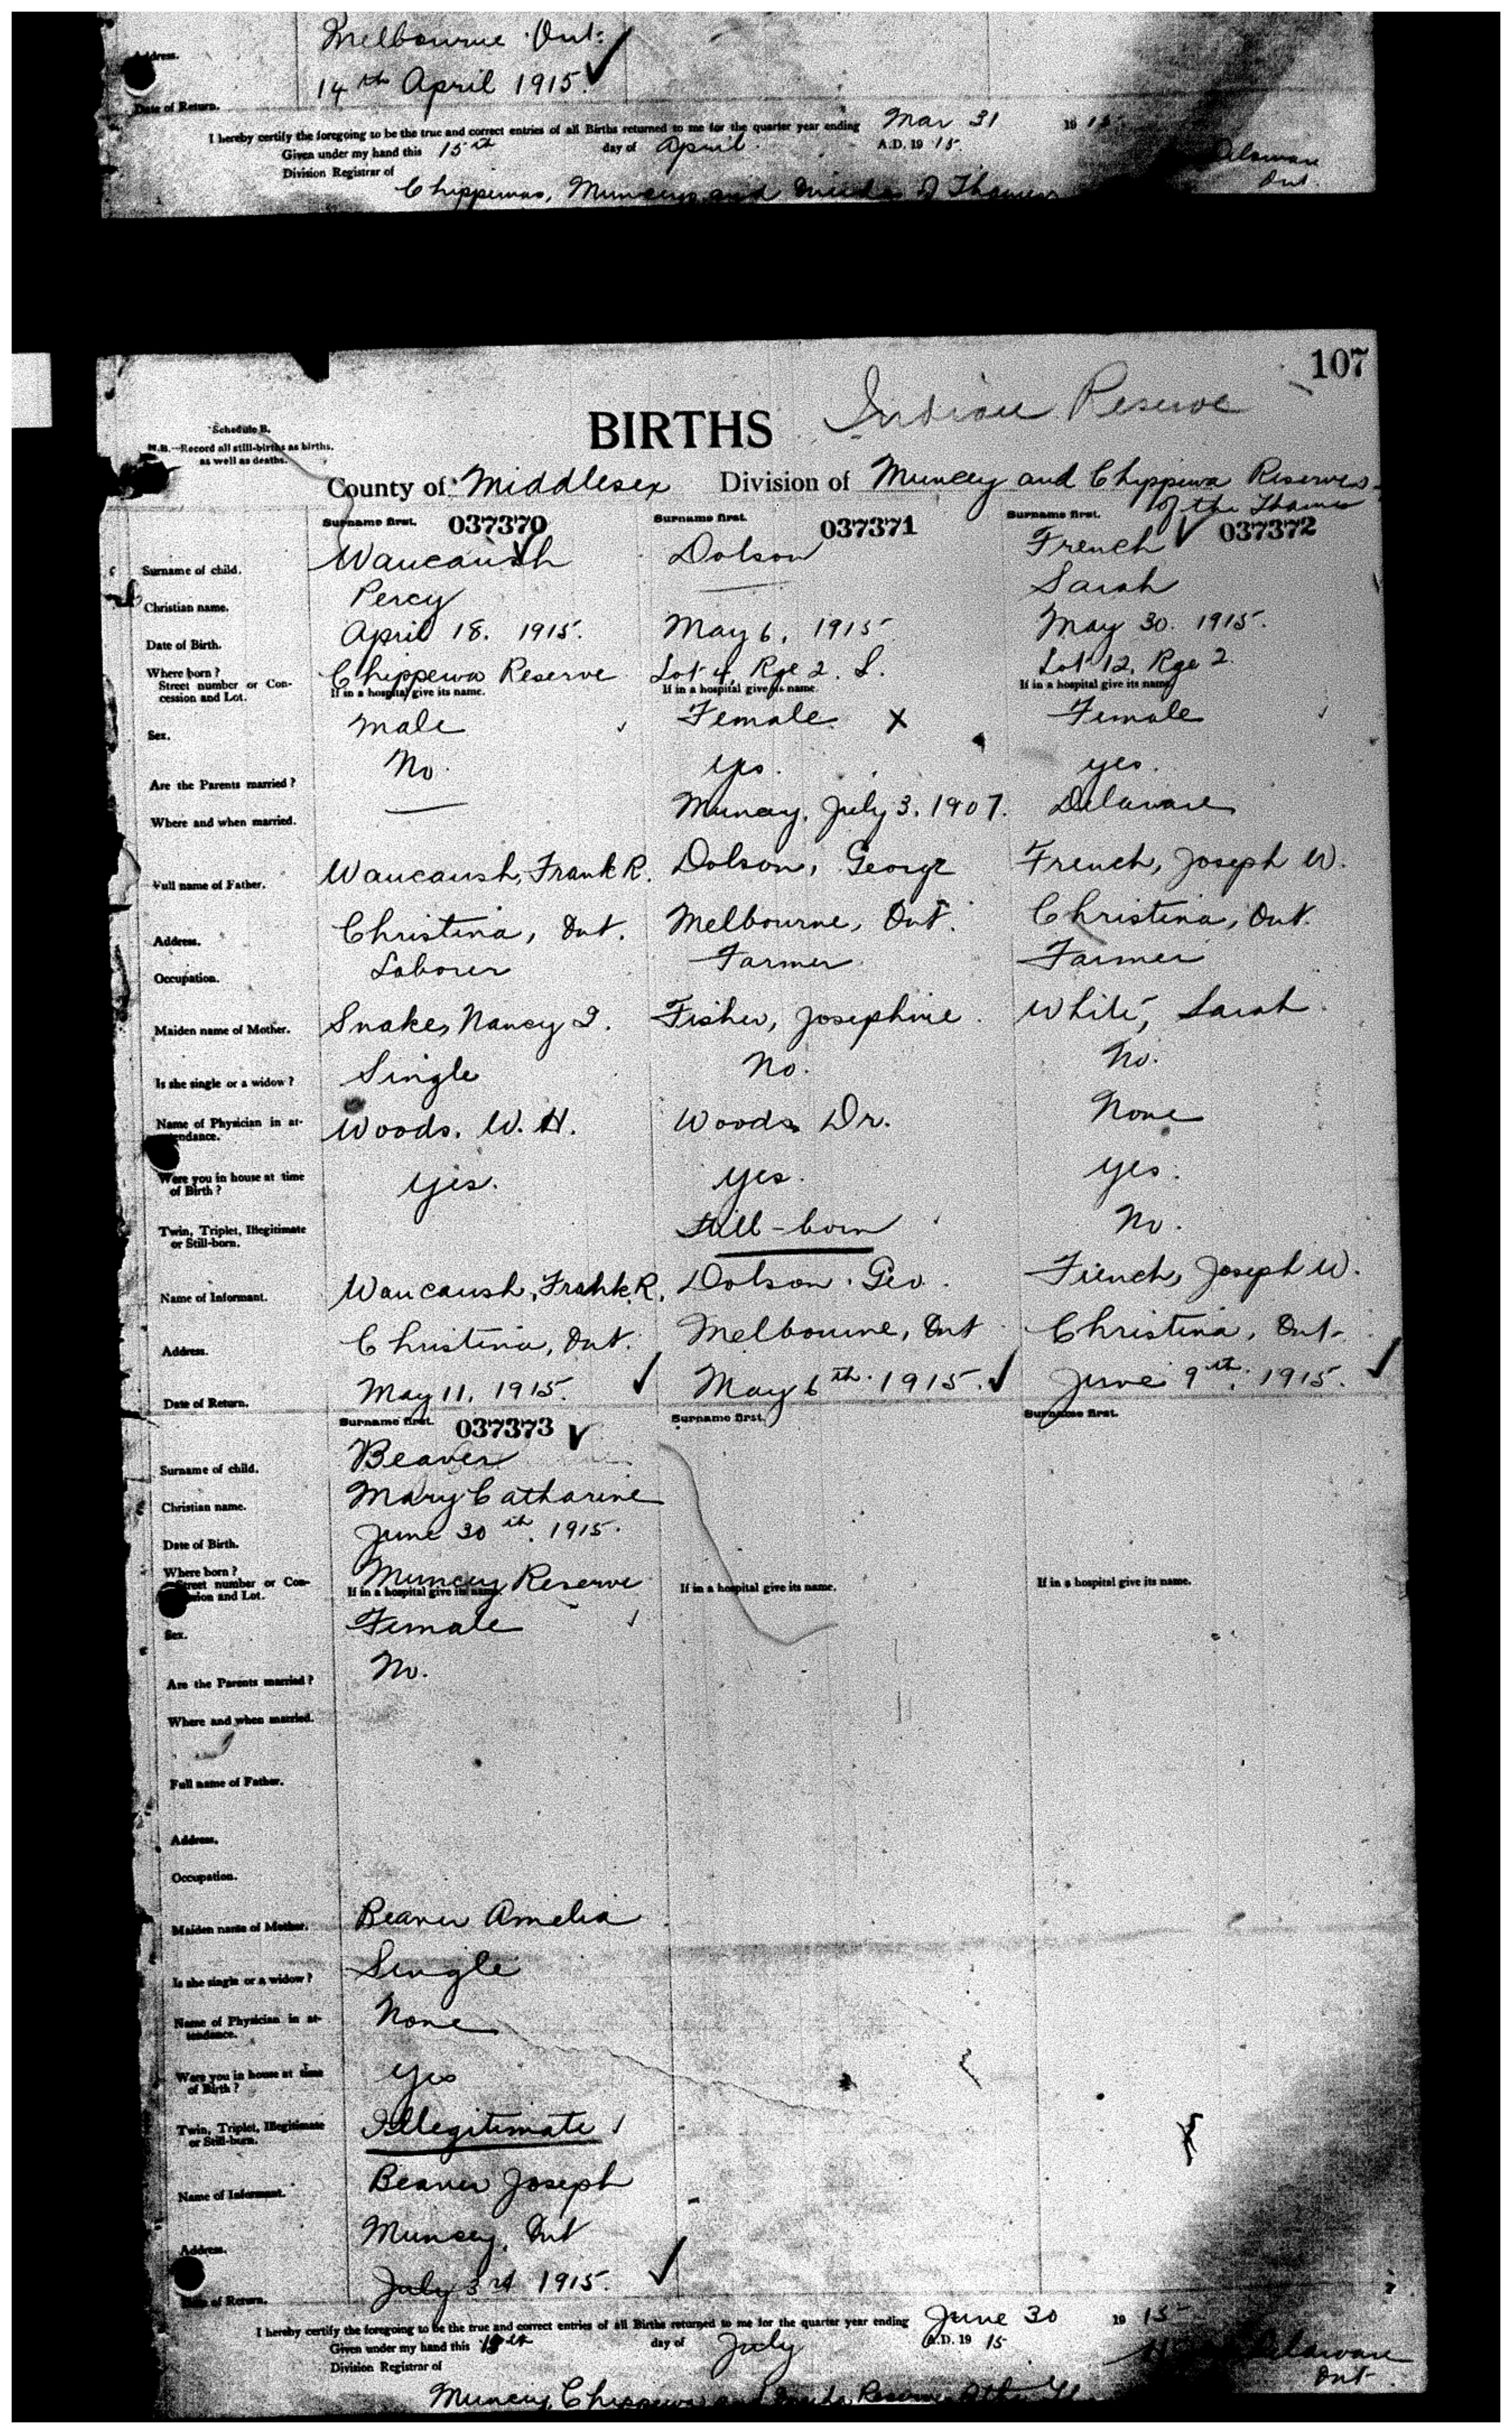 Address. Melbourne Ont.
Date of Return. 14th April 1915.
I hereby certify the foregoing to be the true and correct entries of all Births returned to me for the quarter year ending Mar 31 1915.
Given under my hand this 15th day of April. A.D. 1915
Delaware
Division Registrar of Ont.
Chippewas, Munceys and of Thames
107
Schedule B.
N.B.—Record all still-births as births, as well as deaths.
BIRTHS Indian Reserve
County of Middlesex Division of Muncey and Chippewa Reserves
of the Thames
Surname first. 037370 Surname first. 037371 Surname first. 037372
Surname of child. Waucaush Dolson French
Christian name. Percy — Sarah
Date of Birth. April 18. 1915. May 6, 1915 May 30. 1915.
Where born? Street number or Concession and Lot. Chippewa Reserve Lot 4, Rge 2. S. Lot 12, Rge 2.
If in a hospital give its name. If in a hospital give its name. If in a hospital give its name.
Sex. Male Female X Female
Are the Parents married? No. yes. yes.
Where and when married. — Muncey, July 3. 1907. Delaware
Full name of Father. Waucaush, Frank R. Dolson, George French, Joseph W.
Address. Christina, Ont. Melbourne, Ont. Christina, Ont.
Occupation. Laborer Farmer Farmer
Maiden name of Mother. Snake, Nancy J. Fisher, Josephine White, Sarah.
Is she single or a widow? Single No. No.
Name of Physician in attendance. Woods. W. H. Woods Dr. None
Were you in house at time of Birth? Yes. Yes. Yes.
Twin, Triplet, Illegitimate or Still-born. Still-born No.
Name of Informant. Waucaush, Frank R. Dolson. Geo. French, Joseph W.
Address. Christina, Ont. Melbourne, Ont Christina, Ont.
Date of Return. May 11, 1915. May 6th. 1915. June 9th. 1915.
Surname first. 037373 Surname first. Surname first.
Surname of child. Beaver
Christian name. Mary Catharine
Date of Birth. June 30th. 1915.
Where born? Street number or Concession and Lot. Muncey Reserve
If in a hospital give its name. If in a hospital give its name. If in a hospital give its name.
Sex. Female
Are the Parents married? No.
Where and when married.
Full name of Father.
Address.
Occupation.
Maiden name of Mother. Beaver Amelia
Is she single or a widow? Single
Name of Physician in attendance. None
Were you in house at time of Birth? Yes
Twin, Triplet, Illegitimate or Still-born. Illegitimate
Name of Informant. Beaver Joseph
Address. Muncey, Ont
Date of Return. July 3rd 1915.
I hereby certify the foregoing to be the true and correct entries of all Births returned to me for the quarter year ending June 30 1915
Given under my hand this day of July A.D. 1915
Delaware
Division Registrar of Ont
Muncey, Chippewa and Reserve